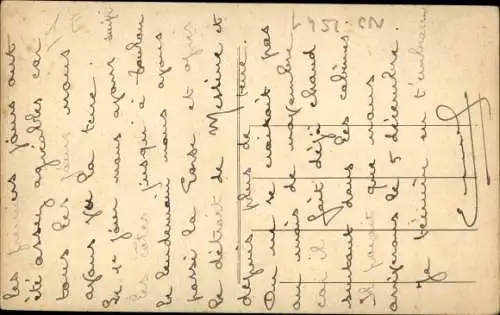 Les premiers jours ont
été assez agréables car
tous les jours nous
avons vu la terre.
Le 1er jour nous avons suivi
les côtes jusqu'à Toulon
le lendemain nous avons
passé la Corse et après
le détroit de Messine et
depuis plus de terre.
On ne se croirait pas
au mois de novembre
car il fait déjà chaud
surtout dans les cabines.
Il paraît que nous
arriverons le 5 décembre.
Je termine en t'embrassant